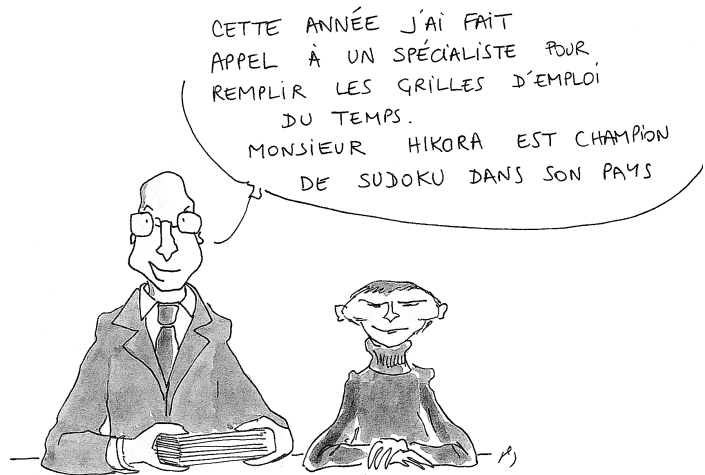 CETTE ANNÉE J'AI FAIT
APPEL À UN SPÉCIALISTE POUR
REMPLIR LES GRILLES D'EMPLOI
DU TEMPS.
MONSIEUR HIKORA EST CHAMPION
DE SUDOKU DANS SON PAYS